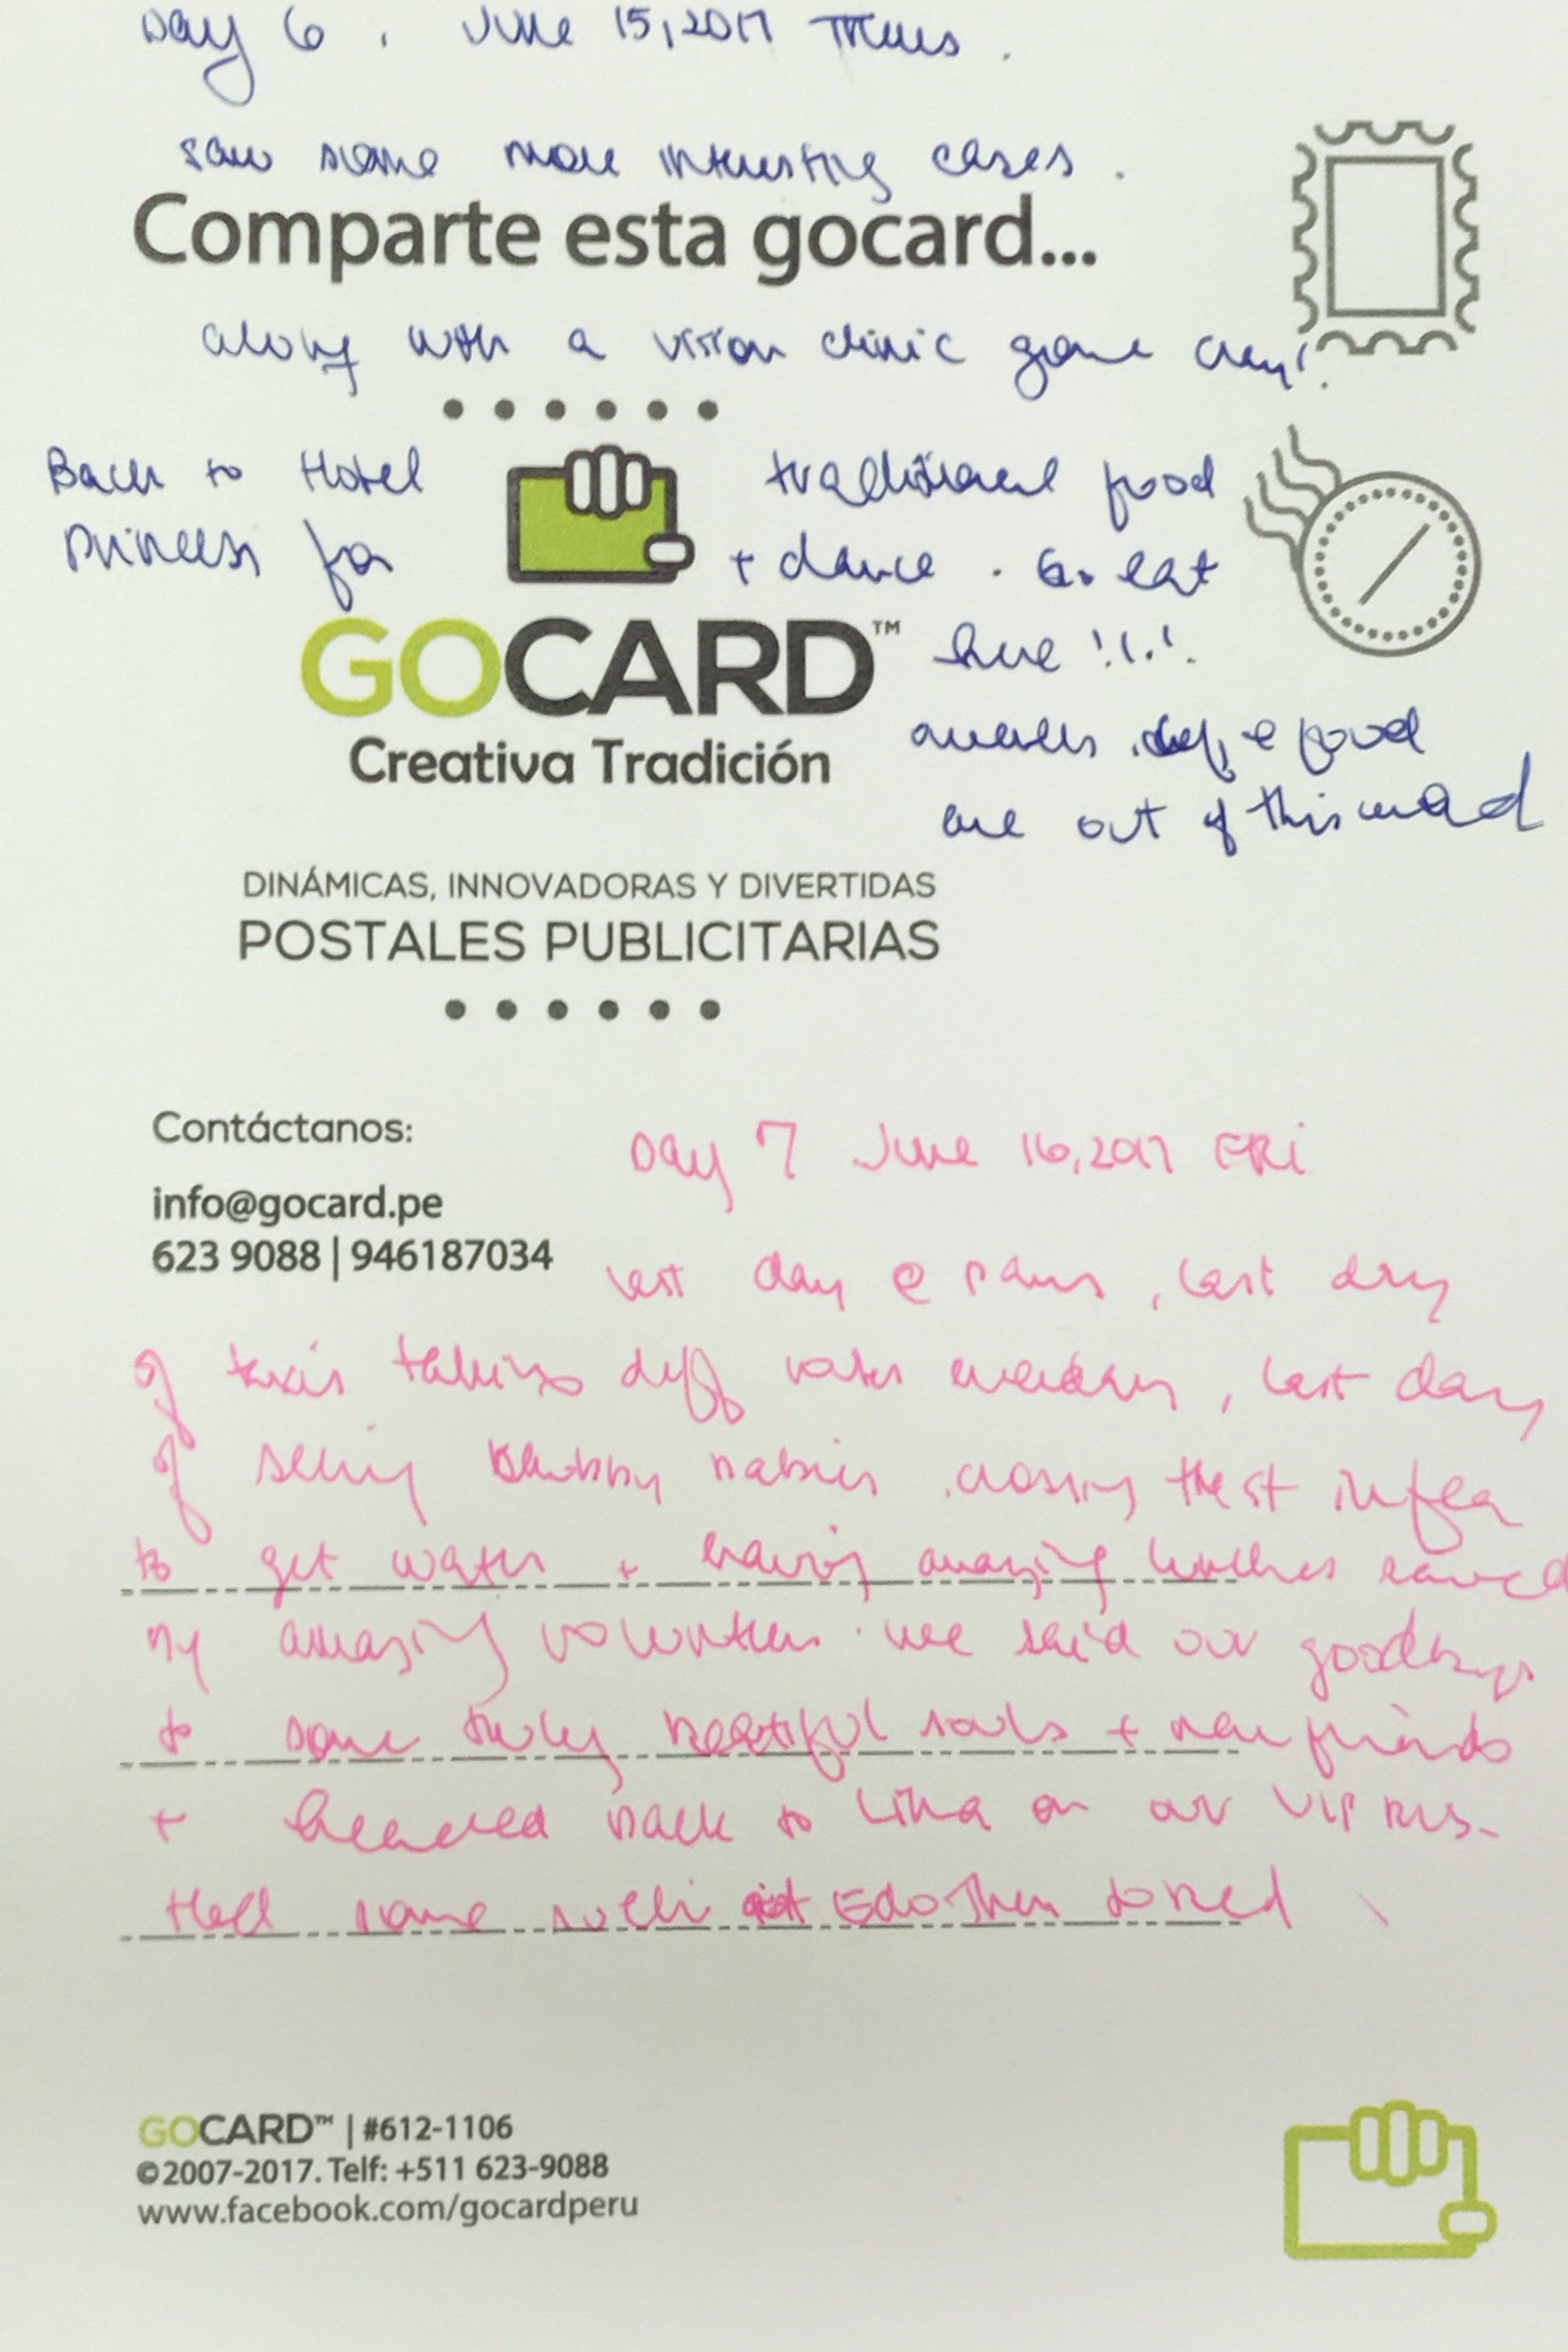 Day 6. June 15, 2017 Thurs.
saw some more interesting cases.
Comparte esta gocard...
along with a vision clinic gone cray!
Back to Hotel traditional food
Princess for + dance. Great
GOCARD™ time !!!!
Creativa Tradición
food
are out of this world
DINÁMICAS, INNOVADORAS Y DIVERTIDAS
POSTALES PUBLICITARIAS
Contáctanos:
Day 7 June 16, 2017 FRI
info@gocard.pe
623 9088 | 946187034
last day @ , last day
of taxis taking diff routes everyday, last day
of seeing chubby babies, crossing the st in fear
to get water + having amazing lunches served
by amazing volunteers. we said our goodbyes
to some truly beautiful souls + new friends
+ headed back to Lima on our VIP bus.
Had some sushi at Edo then to bed
GOCARD™ | #612-1106
©2007-2017. Telf: +511 623-9088
www.facebook.com/gocardperu